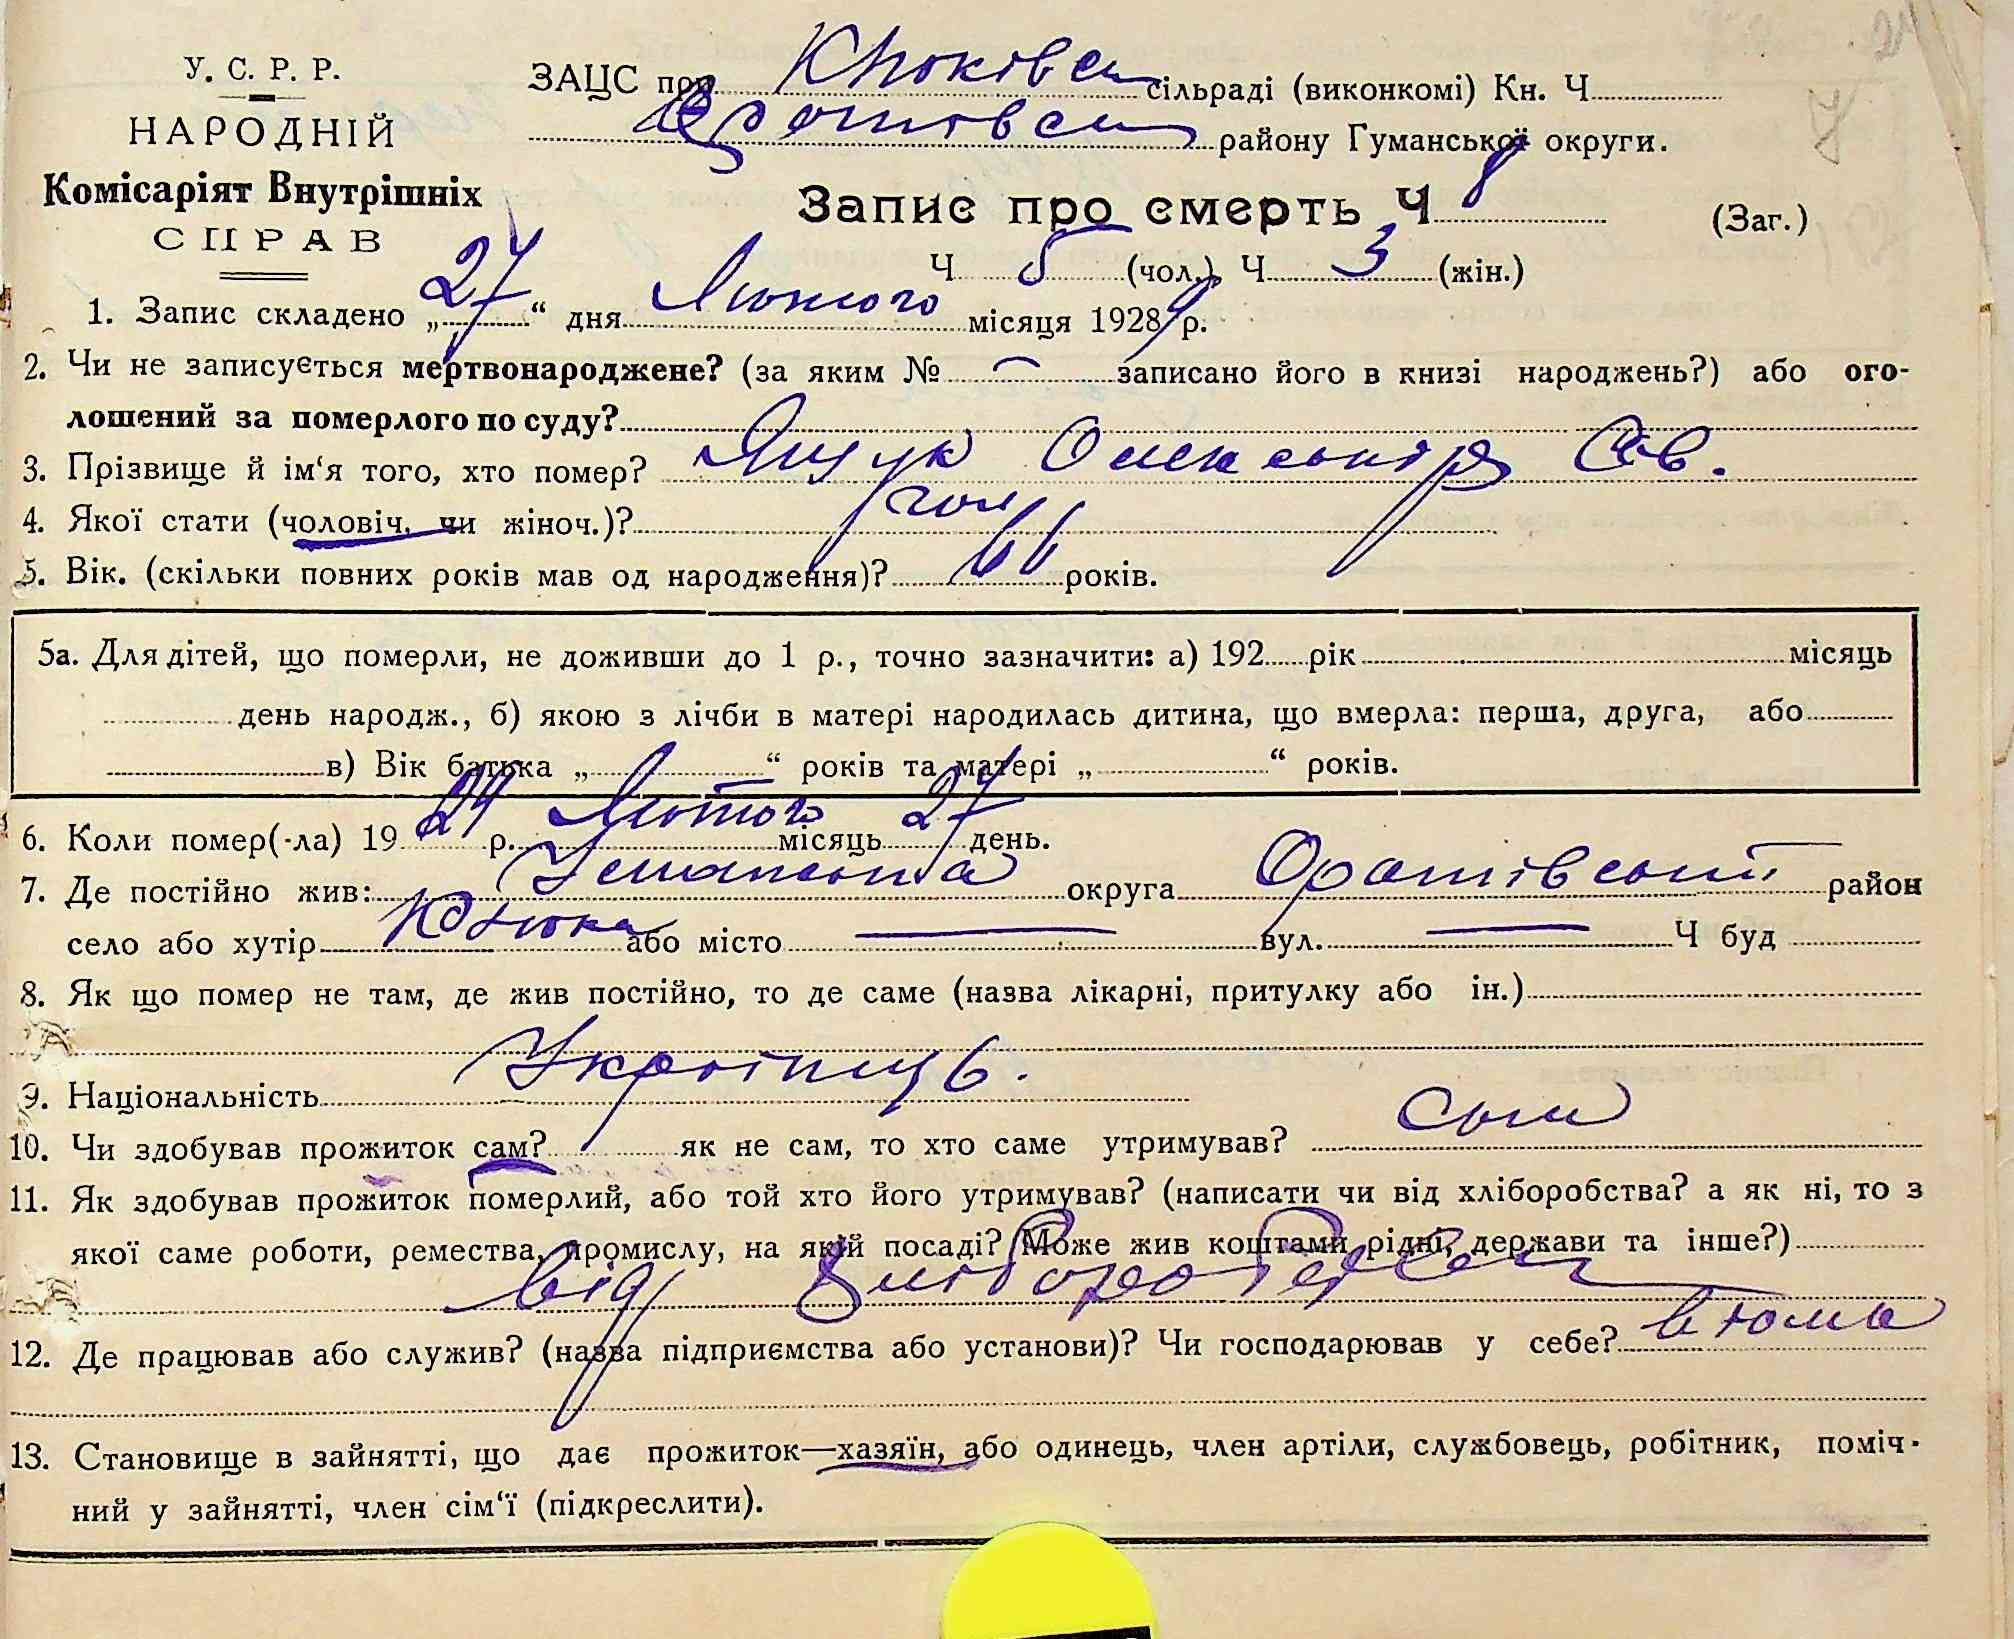 У. С. Р. Р.
НАРОДНІЙ
Комісаріят Внутрішніх
СПРАВ
ЗАЦС при Юшковськ сільраді (виконкомі) Кн. Ч.
Оратовськ району Гуманської округи.
Запис про смерть Ч 8 (Заг.)
Ч 5 (чол.) Ч 3 (жін.)
1. Запис складено „27“ дня Лютого місяця 19289 р.
2. Чи не записується мертвонароджене? (за яким № — записано його в книзі народжень?) або ого-
лошений за померлого по суду?
3. Прізвище й ім‘я того, хто помер? Ящук Олександр Сав.
4. Якої стати (чоловіч. чи жіноч.)? чол
5. Вік. (скільки повних років мав од народження)? 66 років.
5а. Для дітей, що померли, не доживши до 1 р., точно зазначити: а) 192 рік місяць
день народж., б) якою з лічби в матері народилась дитина, що вмерла: перша, друга, або
в) Вік батька „ “ років та матері „ “ років.
6. Коли помер(-ла) 1929 р. Лютого місяць 27 день.
7. Де постійно жив: Уманська округа Оратівський район
село або хутір або місто — вул. — Ч буд
8. Як що помер не там, де жив постійно, то де саме (назва лікарні, притулку або ін.)
9. Національність Україпець.
10. Чи здобував прожиток сам? як не сам, то хто саме утримував? сам
11. Як здобував прожиток померлий, або той хто його утримував? (написати чи від хліборобства? а як ні, то з
якої саме роботи, ремества, промислу, на якій посаді? Може жив коштами рідні, держави та інше?)
від хліборобства
12. Де працював або служив? (назва підприємства або установи)? Чи господарював у себе? вдома
13. Становище в зайнятті, що дає прожиток—хазяїн, або одинець, член артіли, службовець, робітник, поміч-
ний у зайнятті, член сім‘ї (підкреслити).